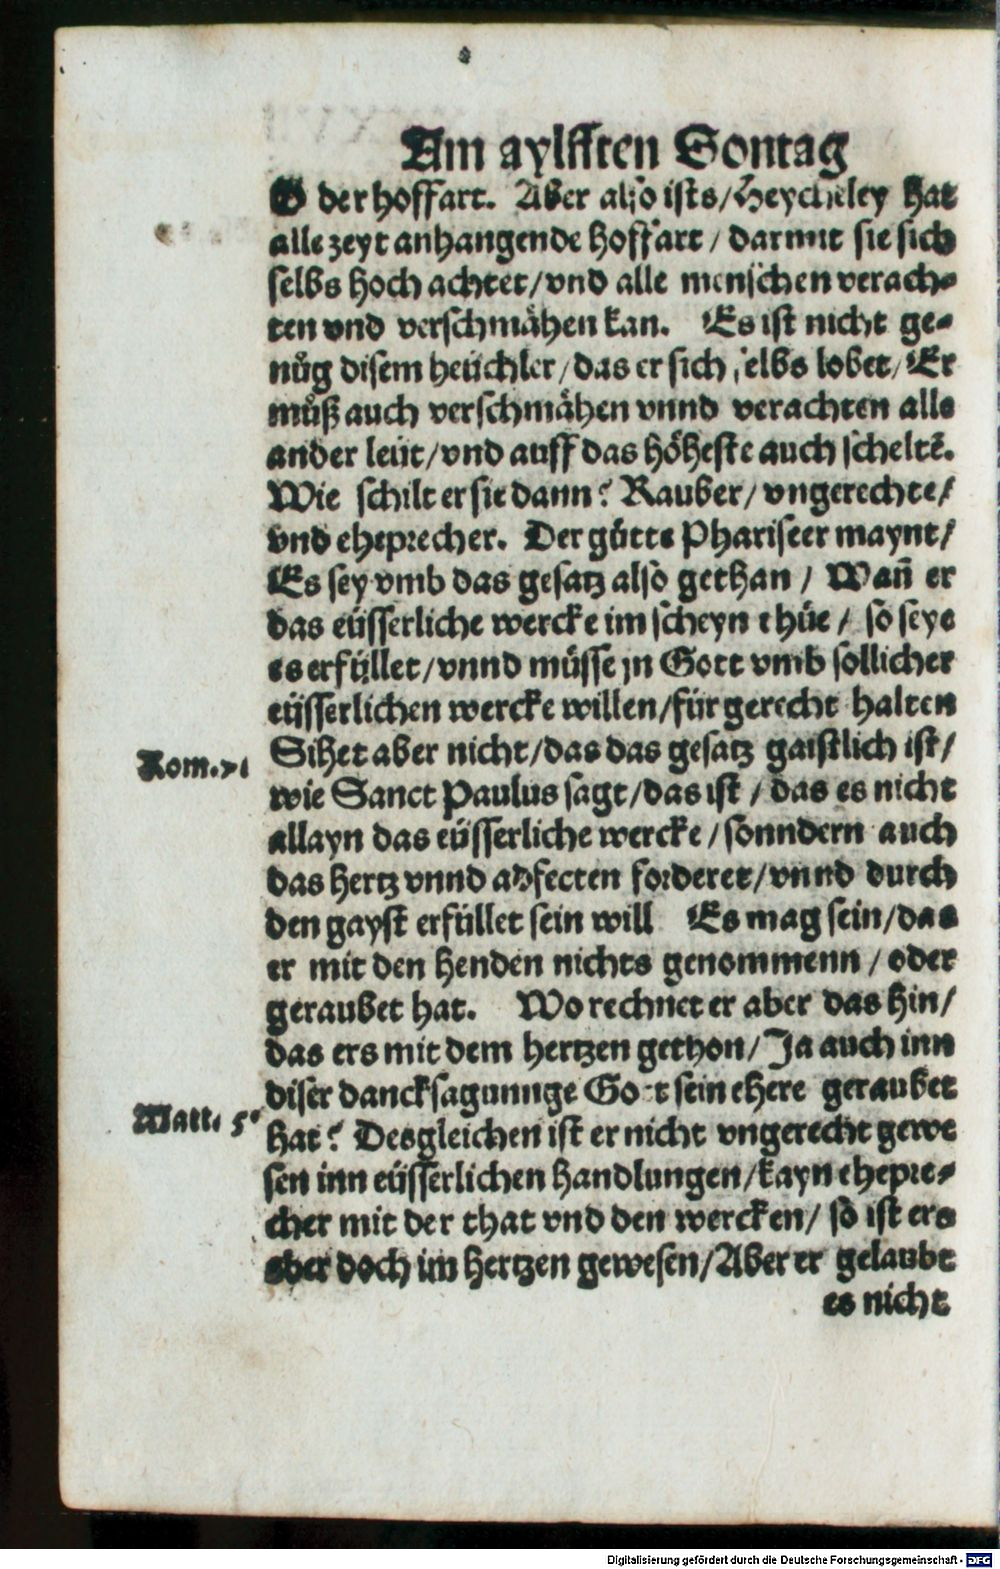 Am aylfften Sontag
O der hoffart. Aber also ists/Heycheley hat
alle zeyt anhangende hoffart/ darmit sie sich
selbs hoch achtet/vnd alle menschen verach-
ten vnd verschmähen kan. Es ist nicht ge-
nůg disem heüchler/das er sich selbs lobet/Er
můß auch verschmähen vnnd verachten alle
ander leüt/vnd auff das höheste auch scheltẽ.
Wie schilt er sie dann? Rauber/ vngerechte/
vnd eheprecher. Der gůtte Phariseer maynt/
Es sey vmb das gesatz also gethan/ Wañ er
das eüsserliche wercke im scheyn thüe/ so seye
es erfüllet/vnnd müsse jn Gott vmb sollicher
eüsserlichen wercke willen/für gerecht halten
Sihet aber nicht/das das gesatz gaistlich ist/
Rom. 7
wie Sanct Paulus sagt/das ist/das es nicht
allayn das eüsserliche wercke/sonndern auch
das hertz vnnd adfecten forderet/vnnd durch
den gayst erfüllet sein will Es mag sein/das
er mit den henden nichts genommenn/oder
geraubet hat. Wo rechnet er aber das hin/
das ers mit dem hertzen gethon/Ja auch inn
diser dancksagunnge Got sein ehere geraubet
Matt. 5.
hat? Desgleichen ist er nicht vngerecht gewe
sen inn eüsserlichen handlungen/kayn ehepre-
cher mit der that vnd den wercken/ so ist ers
aber doch im hertzen gewesen/Aber er gelaubt
es nicht
Digitalisierung gefördert durch die Deutsche Forschungsgemeinschaft - DFG